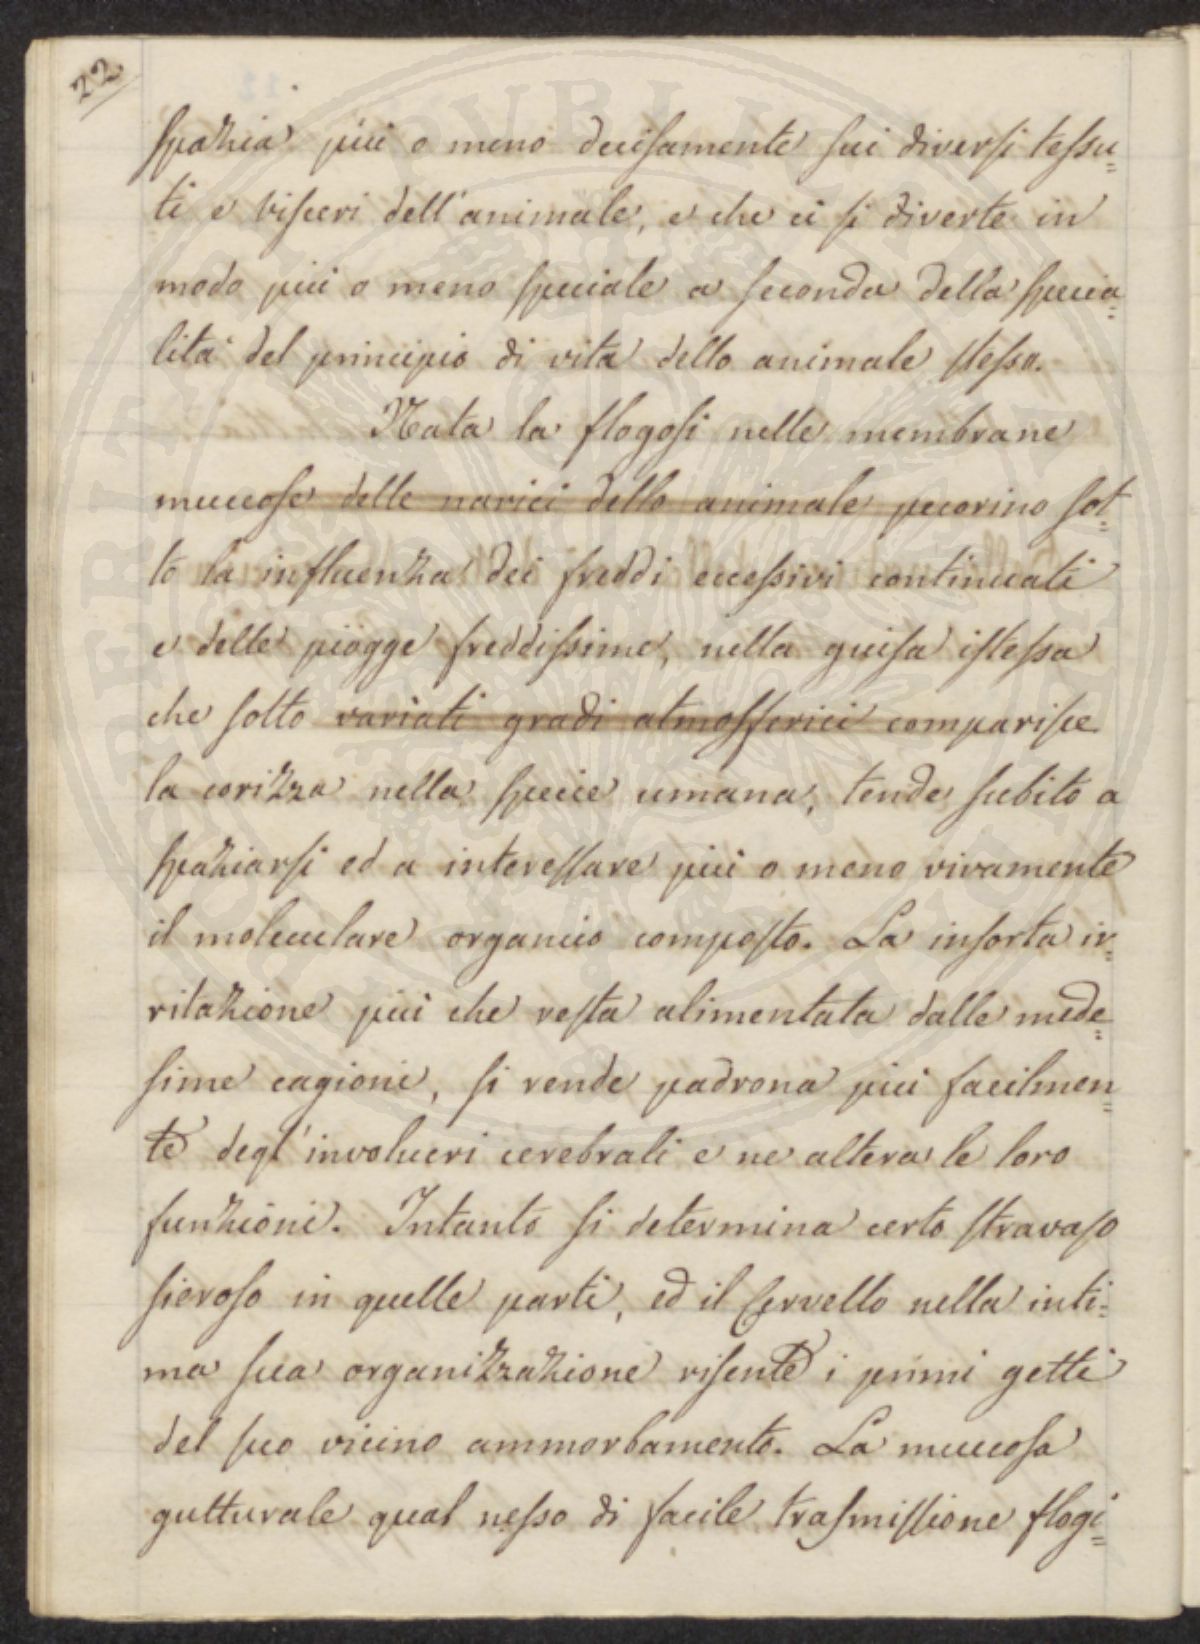 22
spazia più o meno decisamente sui diversi tessu=
ti e visceri dell'animale, e che ci si diverte in
modo più o meno speciale a seconda della specia=
lità del principio di vita dello animale stesso.
Nata la flogosi nelle membrane
muccose delle narici dello animale pecorino sot=
to la influenza dei freddi eccessivi continuati
e delle piogge freddissime, nella guisa istessa
che sotto variati gradi atmosferici comparisce
la corizza nella specie umana, tende subito a
spaziarsi ed a interessare più o meno vivamente
il moleculare organico composto. La insorta ir=
ritazione più che resta alimentata dalle mede=
sime cagioni, si rende padrona più facilmen=
te degl'involucri cerebrali e ne altera le loro
funzioni. Intanto si determina certo stravaso
sieroso in quelle parti, ed il Cervello nella inti=
ma sua organizzazione risente i primi getti
del suo vicino ammorbamento. La muccosa
gutturale qual nesso di facile trasmissione flogi=